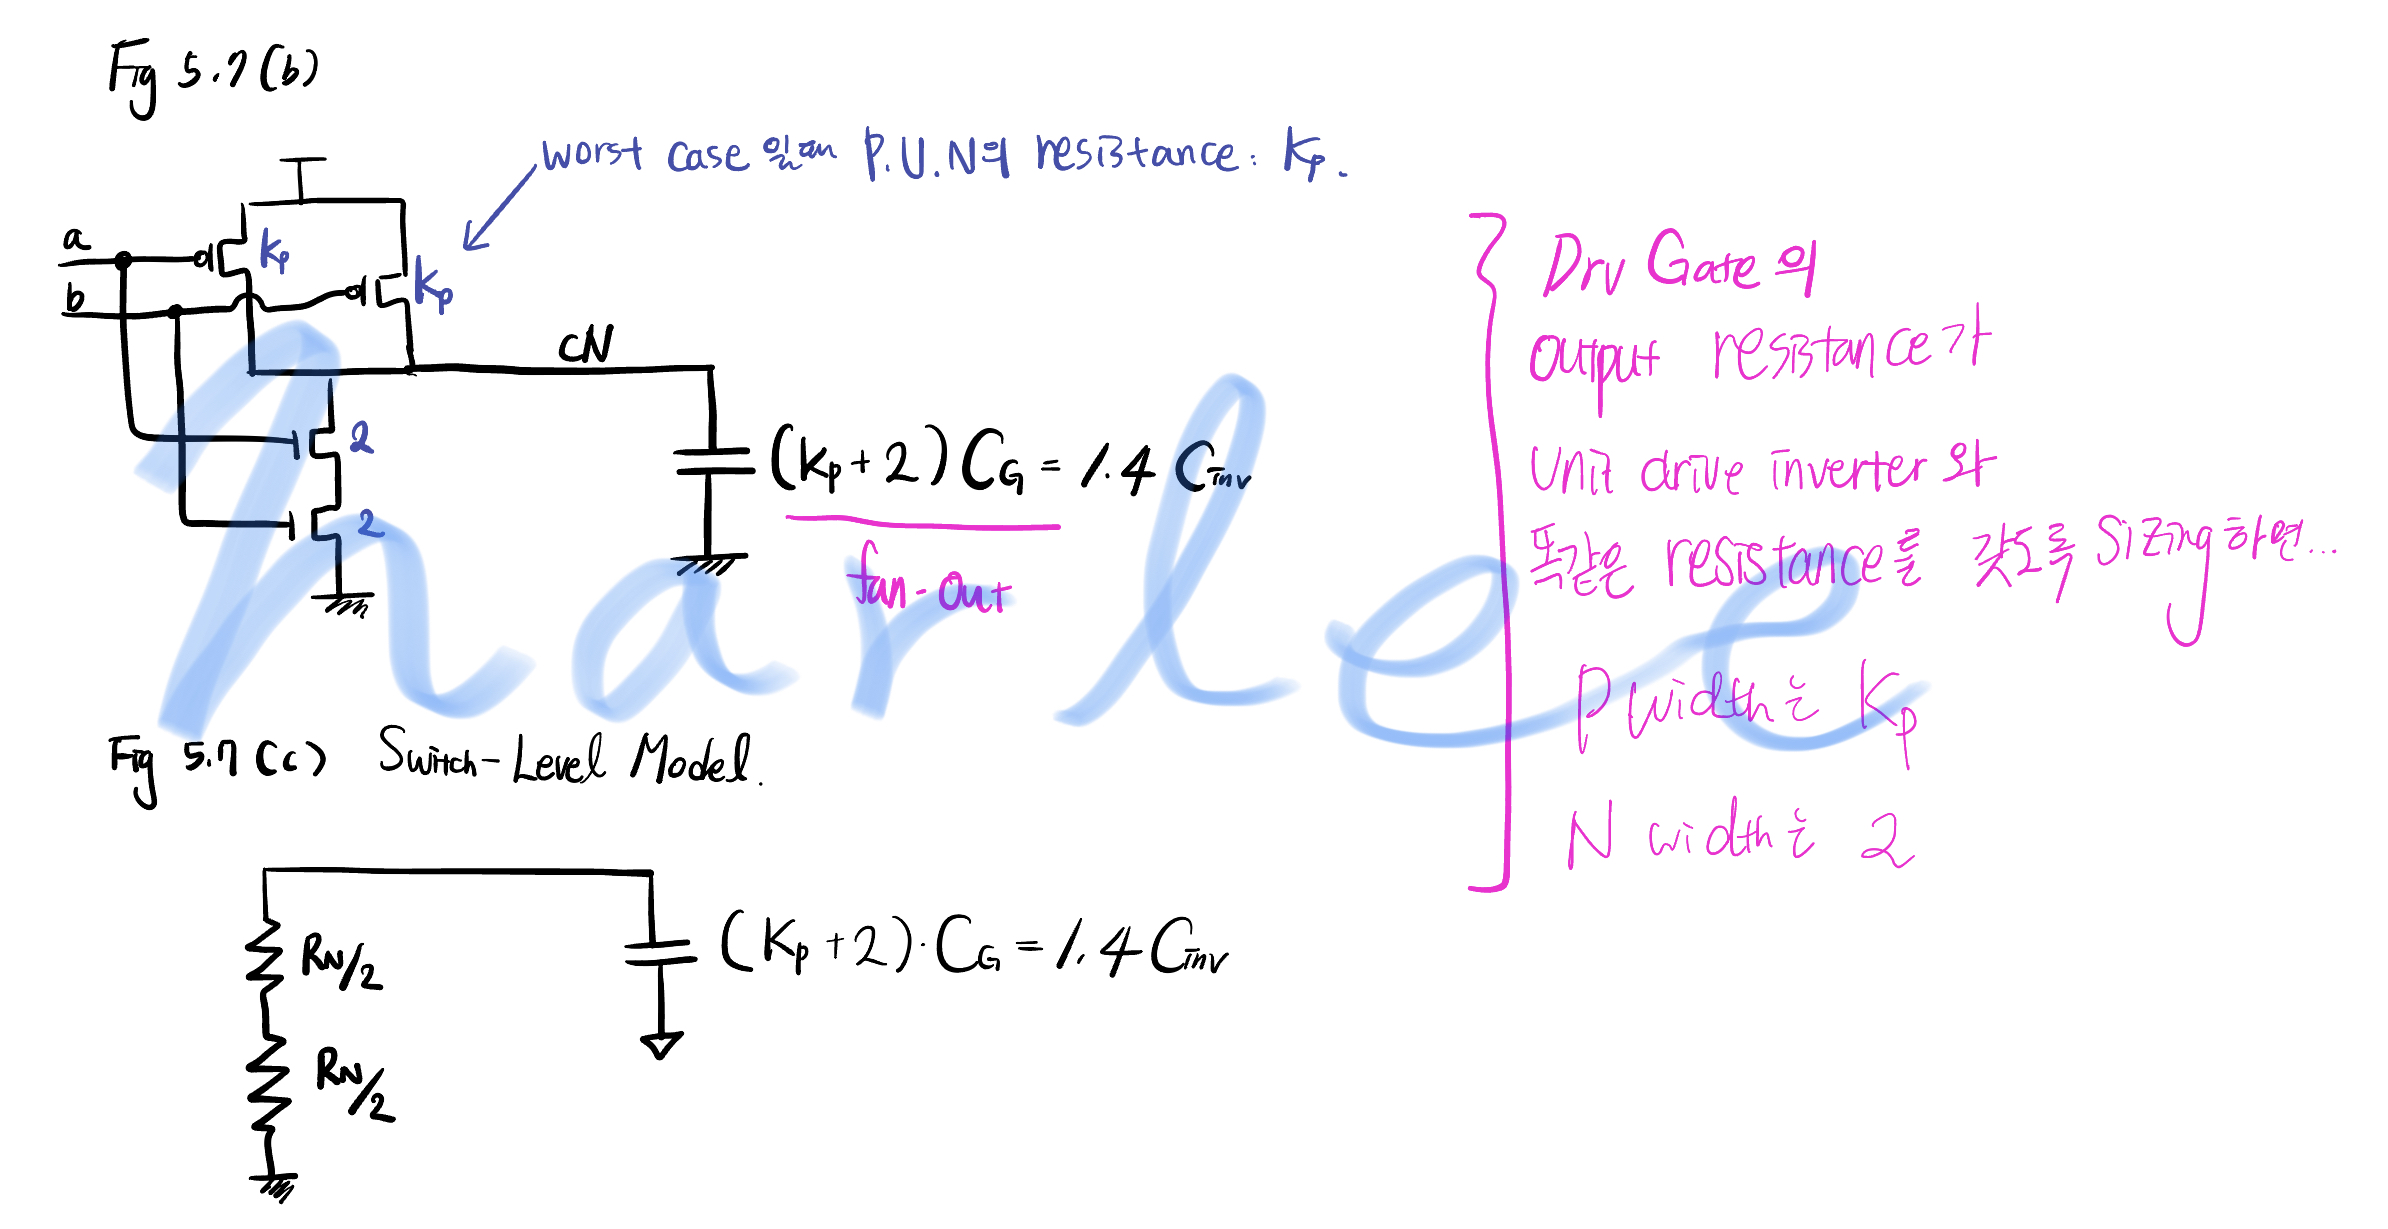 Fig 5.7(b)
worst case 일때 P.U.N의 resistance: Kp.
a
b
Kp
Kp
CN
2
2
(Kp+2) CG = 1.4 Cinv
fan-out
Drv Gate의
output resistance가
Unit drive inverter와
똑같은 resistance를 갖도록 Sizing하면...
P width는 Kp
N width는 2
harlee
Fig 5.7(c) Switch-Level Model.
RN/2
RN/2
(Kp+2)·CG = 1.4 Cinv